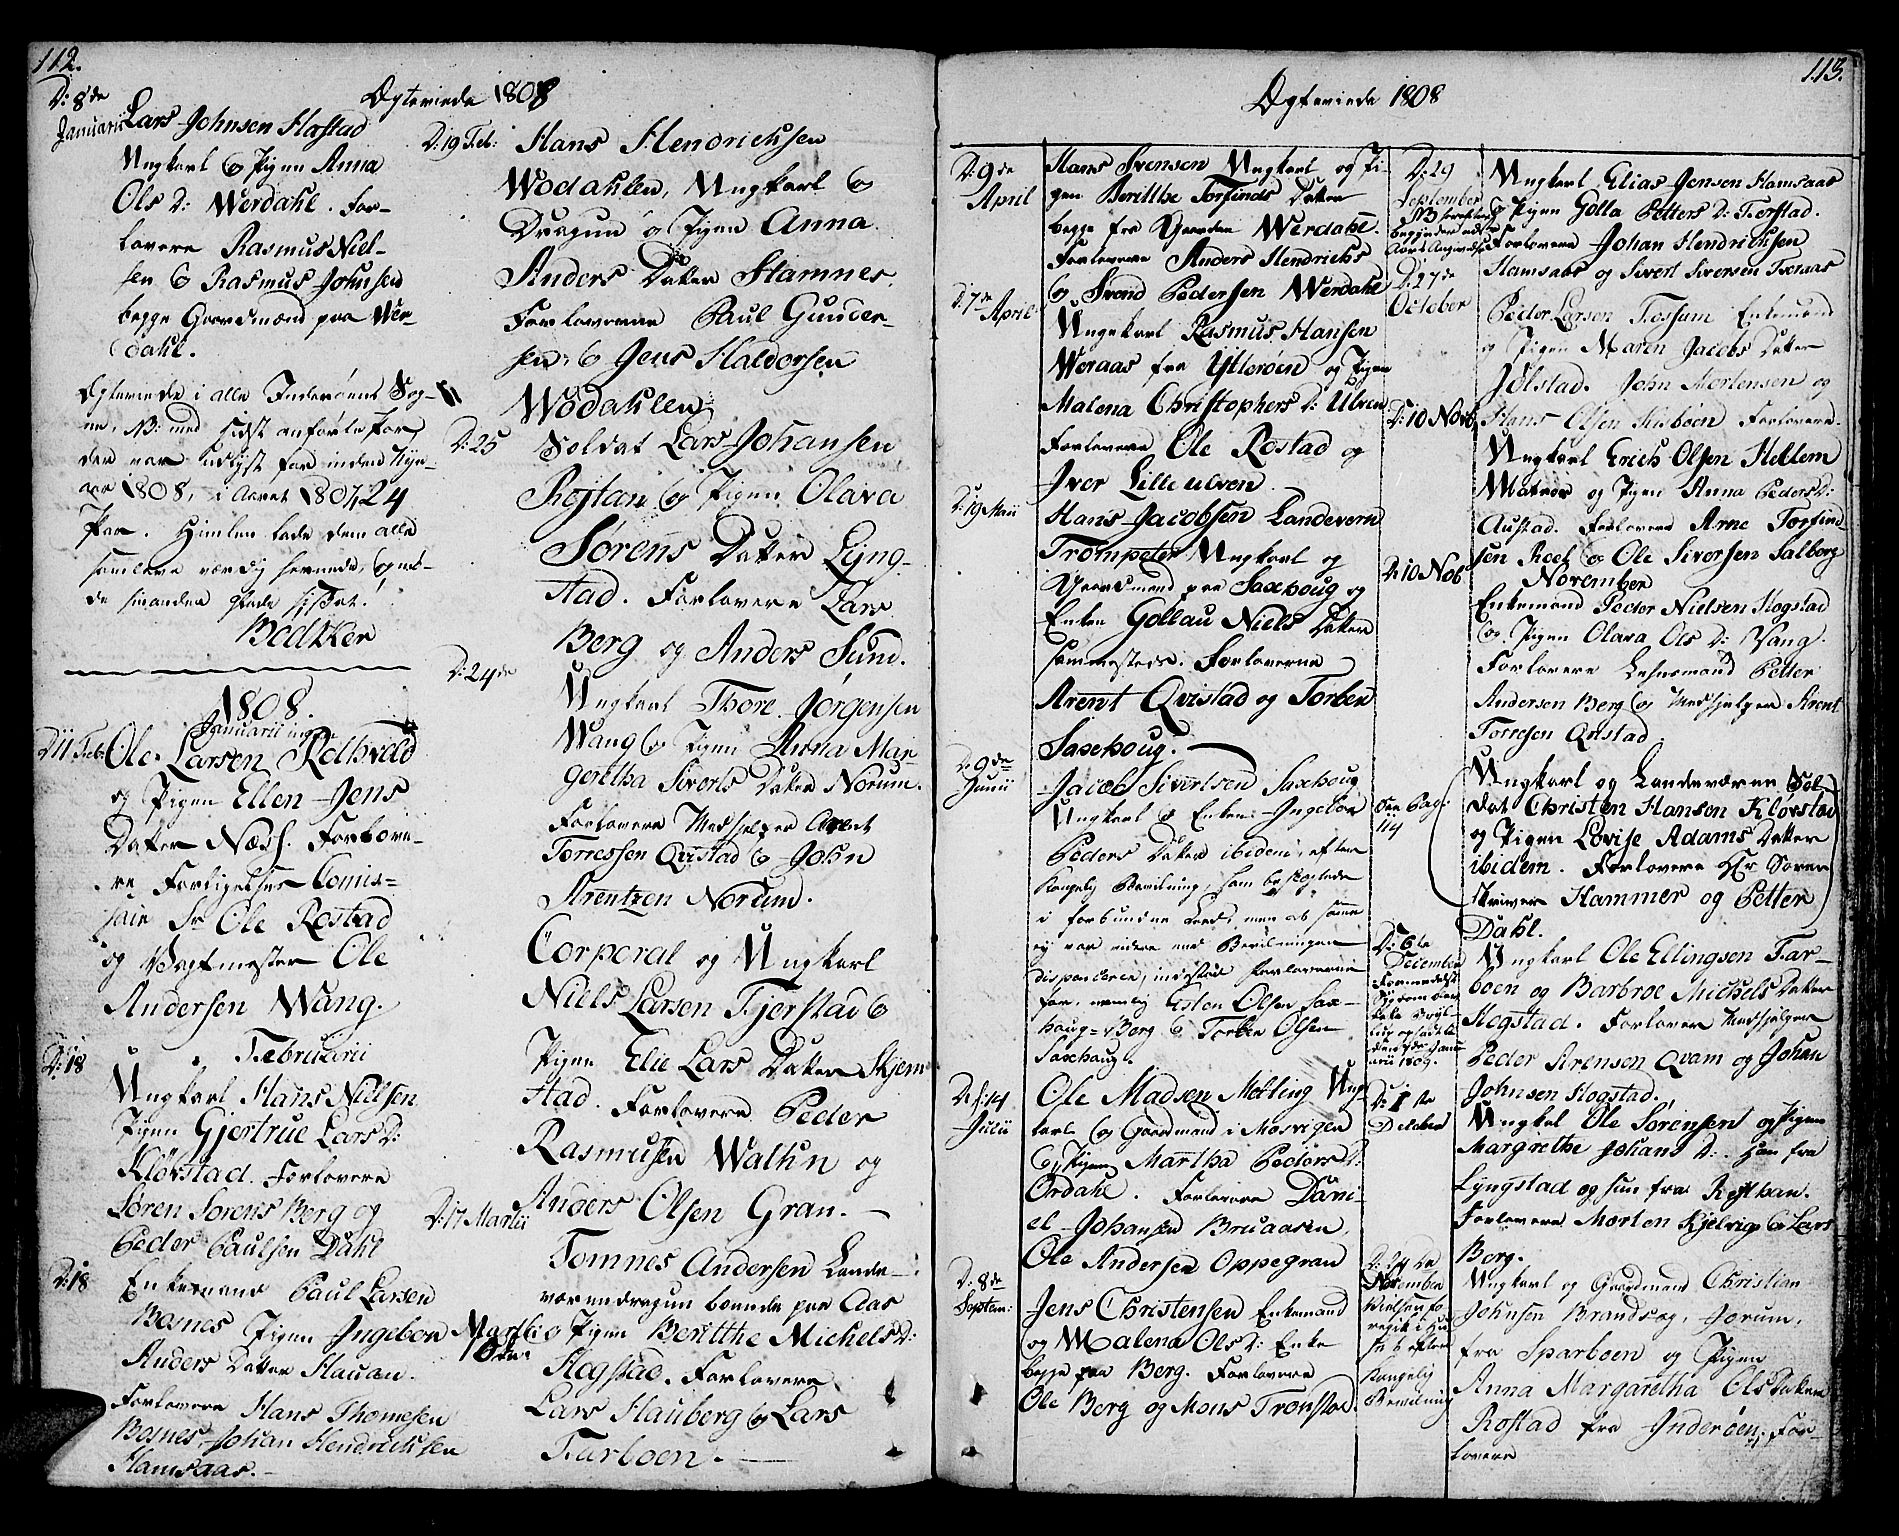 112.
Egteviede 1808
D: 8de Januarii
Lars Johnsen Hastad
Ungkarl & Pigen Anna
Ols D: Werdahl. For-
lovere Rasmus Niel-
sen & Rasmus Johnsen
begge Gaardmænd paa Wer-
dahl.
Egteviede i alle Inderøens Sog-
ne, NB: med sidst anførte Par,
der var udlyst før inden Nyt-
aar 1808, i Aaret 1807, 24
Par. Himlen lade dem alle
samleve
Bødtker
1808.
Januarii
D: 11 Feb:
Ole Larsen Rolhvald
og Pigen Ellen Jens
Datter Næss. Forlove-
re Forligelses Comis-
sair Sr Ole Rostad
og Vagtmester Ole
Andersen Wang.
Februarii
D: 18
Ungkarl Hans Nielsen
Pigen Gjertrue Lars D:
Kløvstad. Forlovere
Søren Sørens Berg og
Peder Paulsen Dahl
D: 18
Enkemand Paul Larsen
Bosnes Pigen Ingebor
Anders Datter Hauan.
Forlovere Hans Thomesen
Bosnes Johan Hendricksen
Hamsaas.
D: 19 Feb:
Hans Hendricksen
Wodahlen, Ungkarl &
Dragun og Pigen Anna
Anders Datter Stamnes.
Forloverne Paul Gunder-
sen & Jens Haldorsen
Wodahlen
D: 25
Soldat Lars Johansen
Rostan & Pigen Olava
Sørens Datter Lyng-
stad. Forlovere Lars
Berg og Anders Sund.
D: 24de
Ungkarl Thore Jørgensen
Wang & Pigen Anna Mar
geretha Siverts Datter Norum.
Forlovere Medhjelper Arent
Torressen Qvistad & John
Arentzen Norum.
Corporal og Ungkarl
Niels Larsen Fjerstad &
Pigen Elie Lars Datter Skjem
stad. Forlovere Peder
Rasmusen Walhn og
Anders Olsen Gran.
D: 17 Martii
Tomnes Andersen Lande-
værendragun boende paa Aas
og Pigen Beritthe Michels D:
Hogstad. Forlovere
Lars Hauberg & Lars
Farboen.
113.
Egteviede 1808
D: 9de April
Hans Svensen Ungkarl og Pi-
gen Beritthe Torfinds Datter
begge fra Gaarden Werdahl.
Forlovere Anders Hendrichs
& Svend Pedersen Werdahl
D: 7de April
Ungekarl Rasmus Hansen
Weraas fra Ytterøen og Pigen
Malena Christophers D: Ulven
Forlovere Ole Rostad og
Iver Lille ulven.
D: 19 Maii
Hans Jacobsen Landevern
Trompeter Ungkarl og
Gaardmand paa Saxhoug og
Enken Gollau Niels Datter
sammesteds. Forloverne
Arent Qvistad og Torber
Saxehoug.
D: 9de Junii
Jacob Sivertsen Saxhoug
Ungkarl & Enken Ingebor
Peders Datter ibidem, efter
Kongelig Bevilning, som beslægtede
i forbundne Leed, men da samme
ey var videre med Bevilningen
, indestod Forloverne
for, nemlig Esten Olsen Sax-
houg-Berg & Torber Olsen
Saxehoug.
D: 14 Julii
Ole Madsen Melling Ung-
karl & Gaardmand i Mosvigen
& Pigen Martha Peders D:
Ordahl. Forlovere Dani-
el Johansen Bruaasen,
Ole Andersen Oppegran
D: 8de Septem:
Jens Christensen Enkemand
og Malena Ols D: Enke
begge paa Berg. Forlovere
Ole Berg og Mons Tronstad.
D: 29 September
Ungkarl Elias Jensen Hamsaas
& Pigen Golla Petters D: Fierstad.
Forlovere Johan Hendricksen
Hamsaas og Sivert Siversen Træaas
D: 27de October
Peder Larsen Fossum Enkemand
og Pigen Maren Jacobs Datter
Jølstad. John Mortensen og
Hans Olsen Husbøen Forlovere.
D: 10 Novb.
Ungkarl Erich Olsen Hellem
Matros og Pigen Anna Peders D:
Austad. Forlovere Arne Torfind-
sen Roel & Ole Siversen Salberg
November
D: 10 Nob
Enkemand Peder Nielsen Hogstad
& Pigen Olava Ols D: Vang.
Forlovere Lehnsmand Petter
Andersen Berg & Medhjelper Arent
Torresen Qvistad
See Pag: 114
Ungkarl og Landeværn Sol-
dat Christen Hansen Kløvstad
og Pigen Lovise Adams Datter
ibidem. Forlovere Hr Soren
skriver Hammer og Petter
Dahl.
D: 6te December
Ungkarl Ole Ellingsen Far-
boen og Barbroe Michels Datter
Hogstad. Forlovere Medhjelper
Peder Arensen Qvam og Johan
Johnsen Hogstad.
D: 1ste December
Ungkarl Ole Sørensen og Pigen
Margrethe Johans D:. Han fra
Lyngstad og hun fra Røsthan.
Forlovere Morten Kjelvig & Lars
Berg.
D: 24de November
Vielsen fo-
regik i Hu
set efter
Kongelig
Bevilning
Ungkarl og Gaardmand Christian
Johnsen Brandsog, Jorum,
fra Sparboen og Pigen
Anna Margaretha Ols Datter
Rostad fra Inderøen. For-
lovere